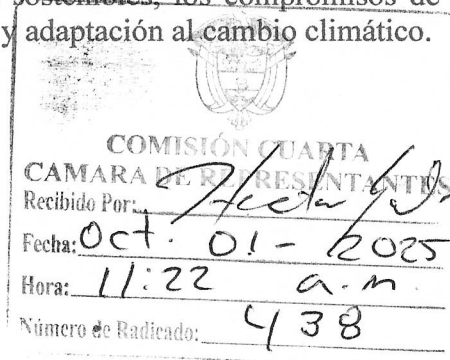 sostenibles, los compromisos de
y adaptación al cambio climático.
COMISIÓN CUARTA
CAMARA DE REPRESENTANTES
Recibido Por: Hector
Fecha: Oct. 01 - 2025
Hora: 11:22 a.m
Número de Radicado: 438